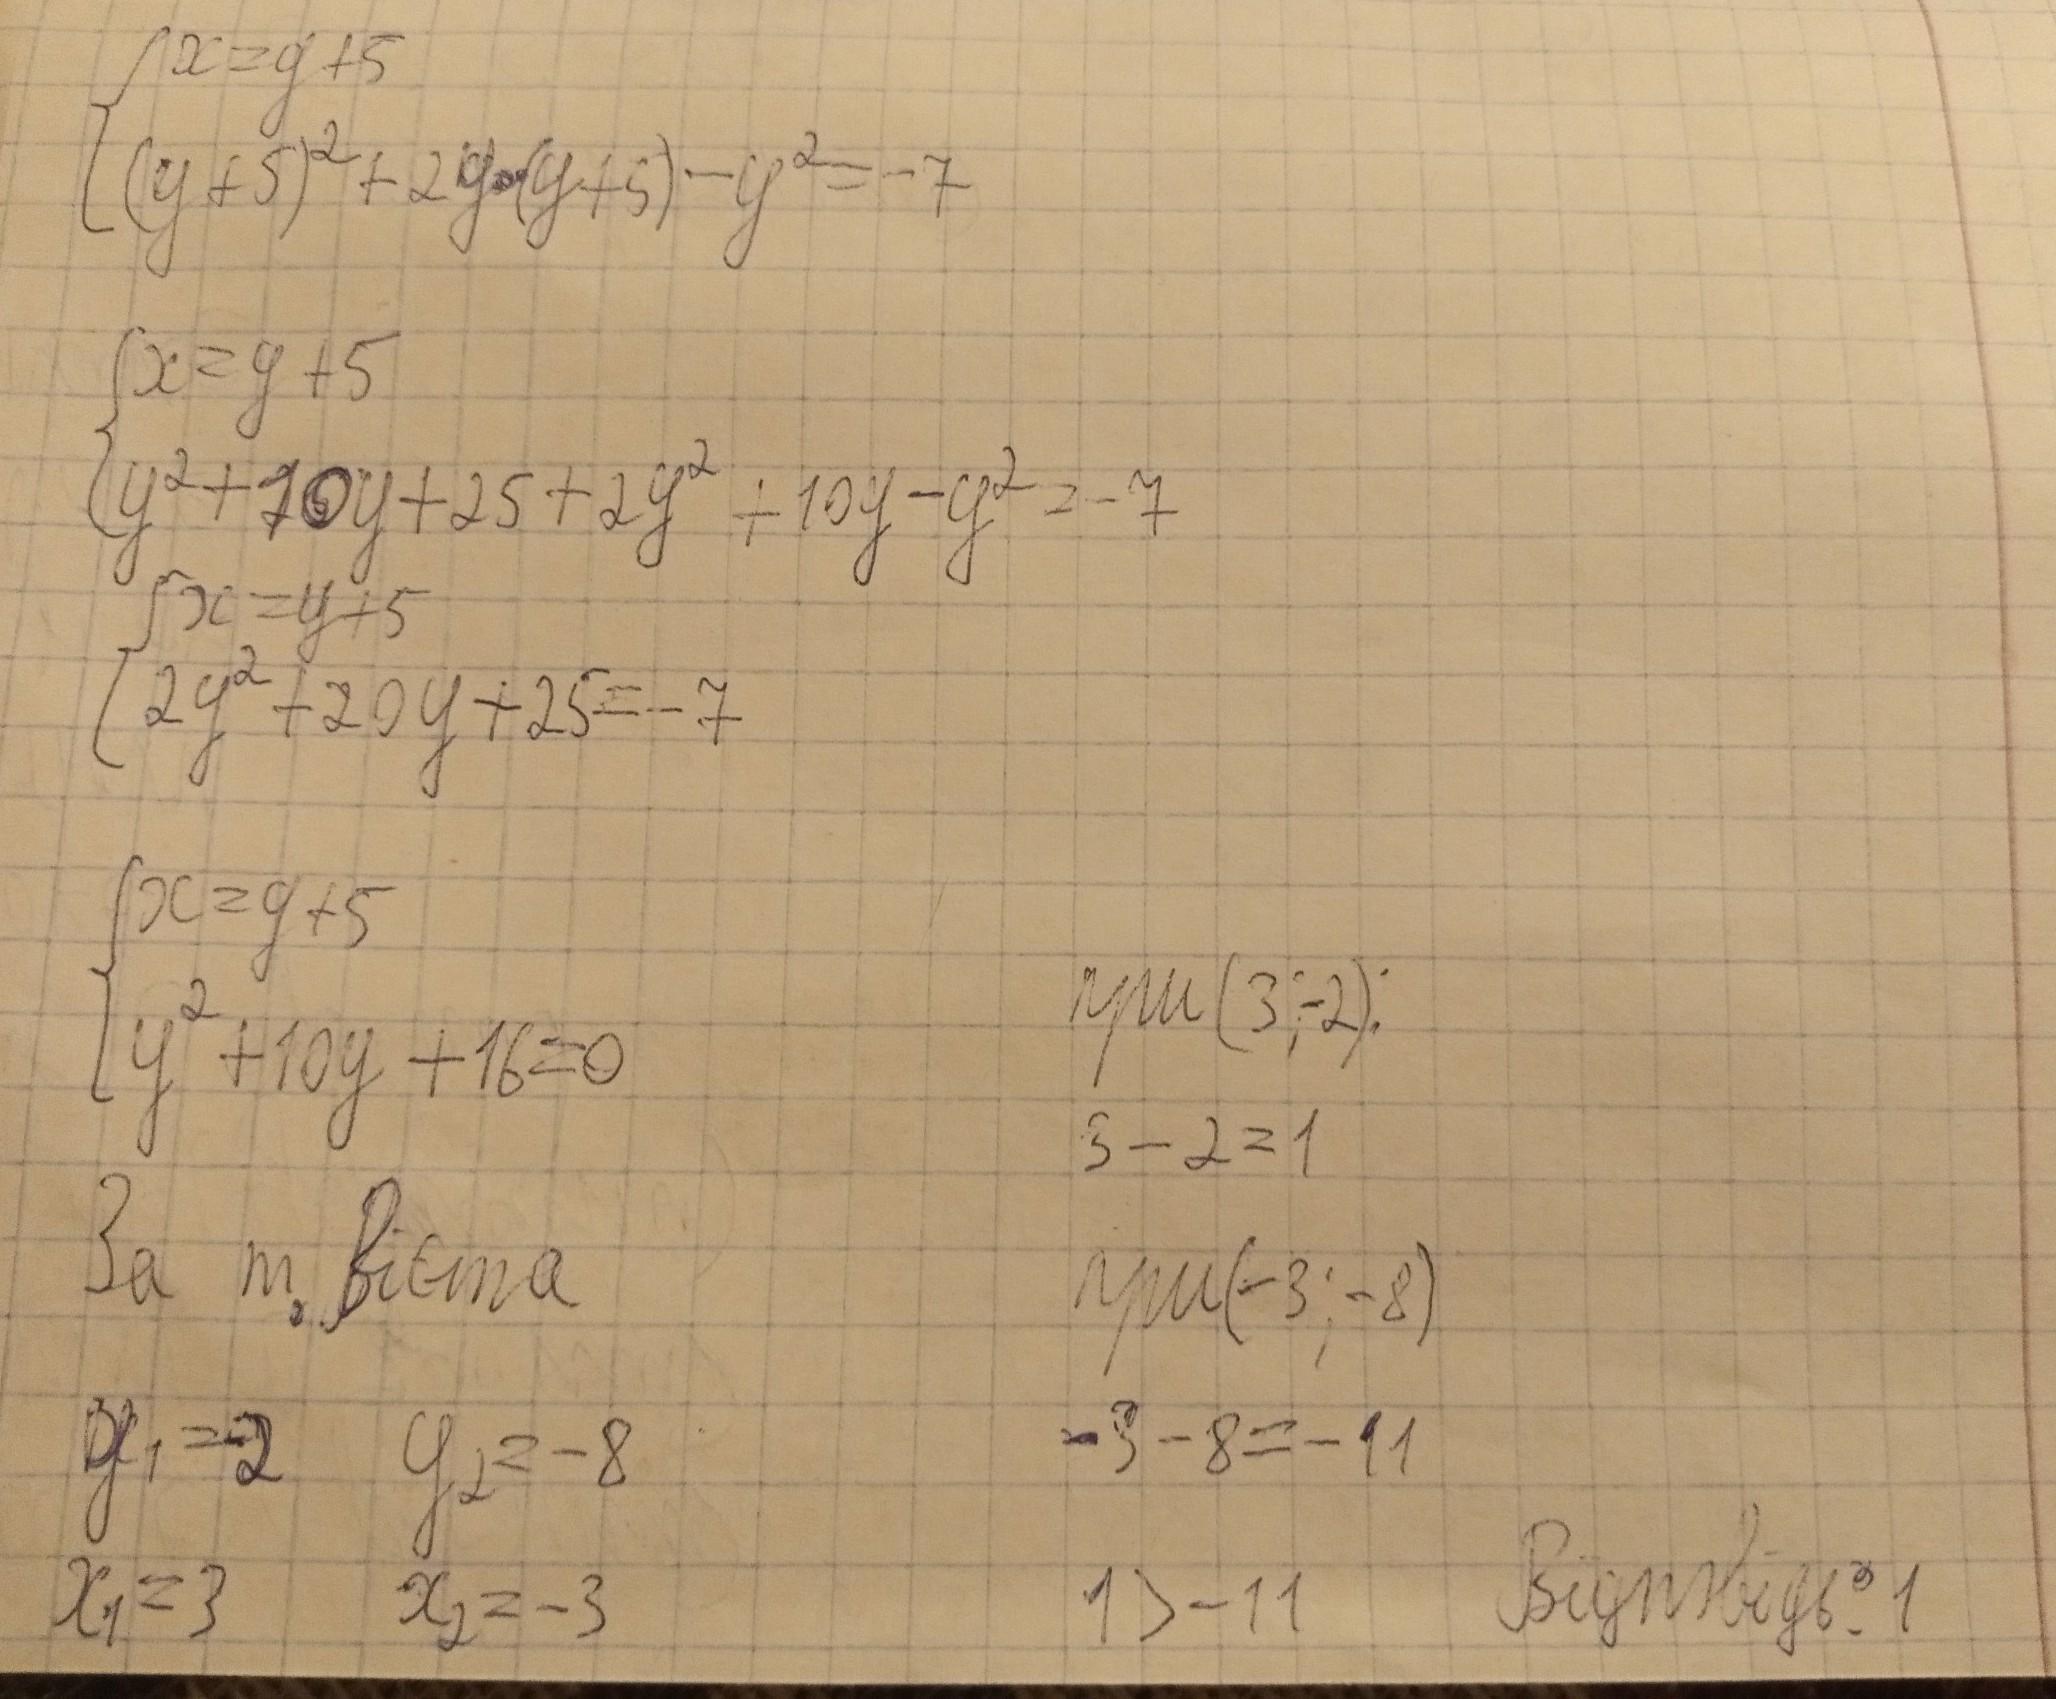 x=y+5
(y+5)²+2y·(y+5)-y²=-7
x=y+5
y²+10y+25+2y²+10y-y²=-7
x=y+5
2y²+20y+25=-7
x=y+5
y²+10y+16=0
За т. Вієта
y₁=-2 y₂=-8
x₁=3 x₂=-3
при (3;-2):
3-2=1
при (-3;-8)
-3-8=-11
1>-11
Відповідь: 1